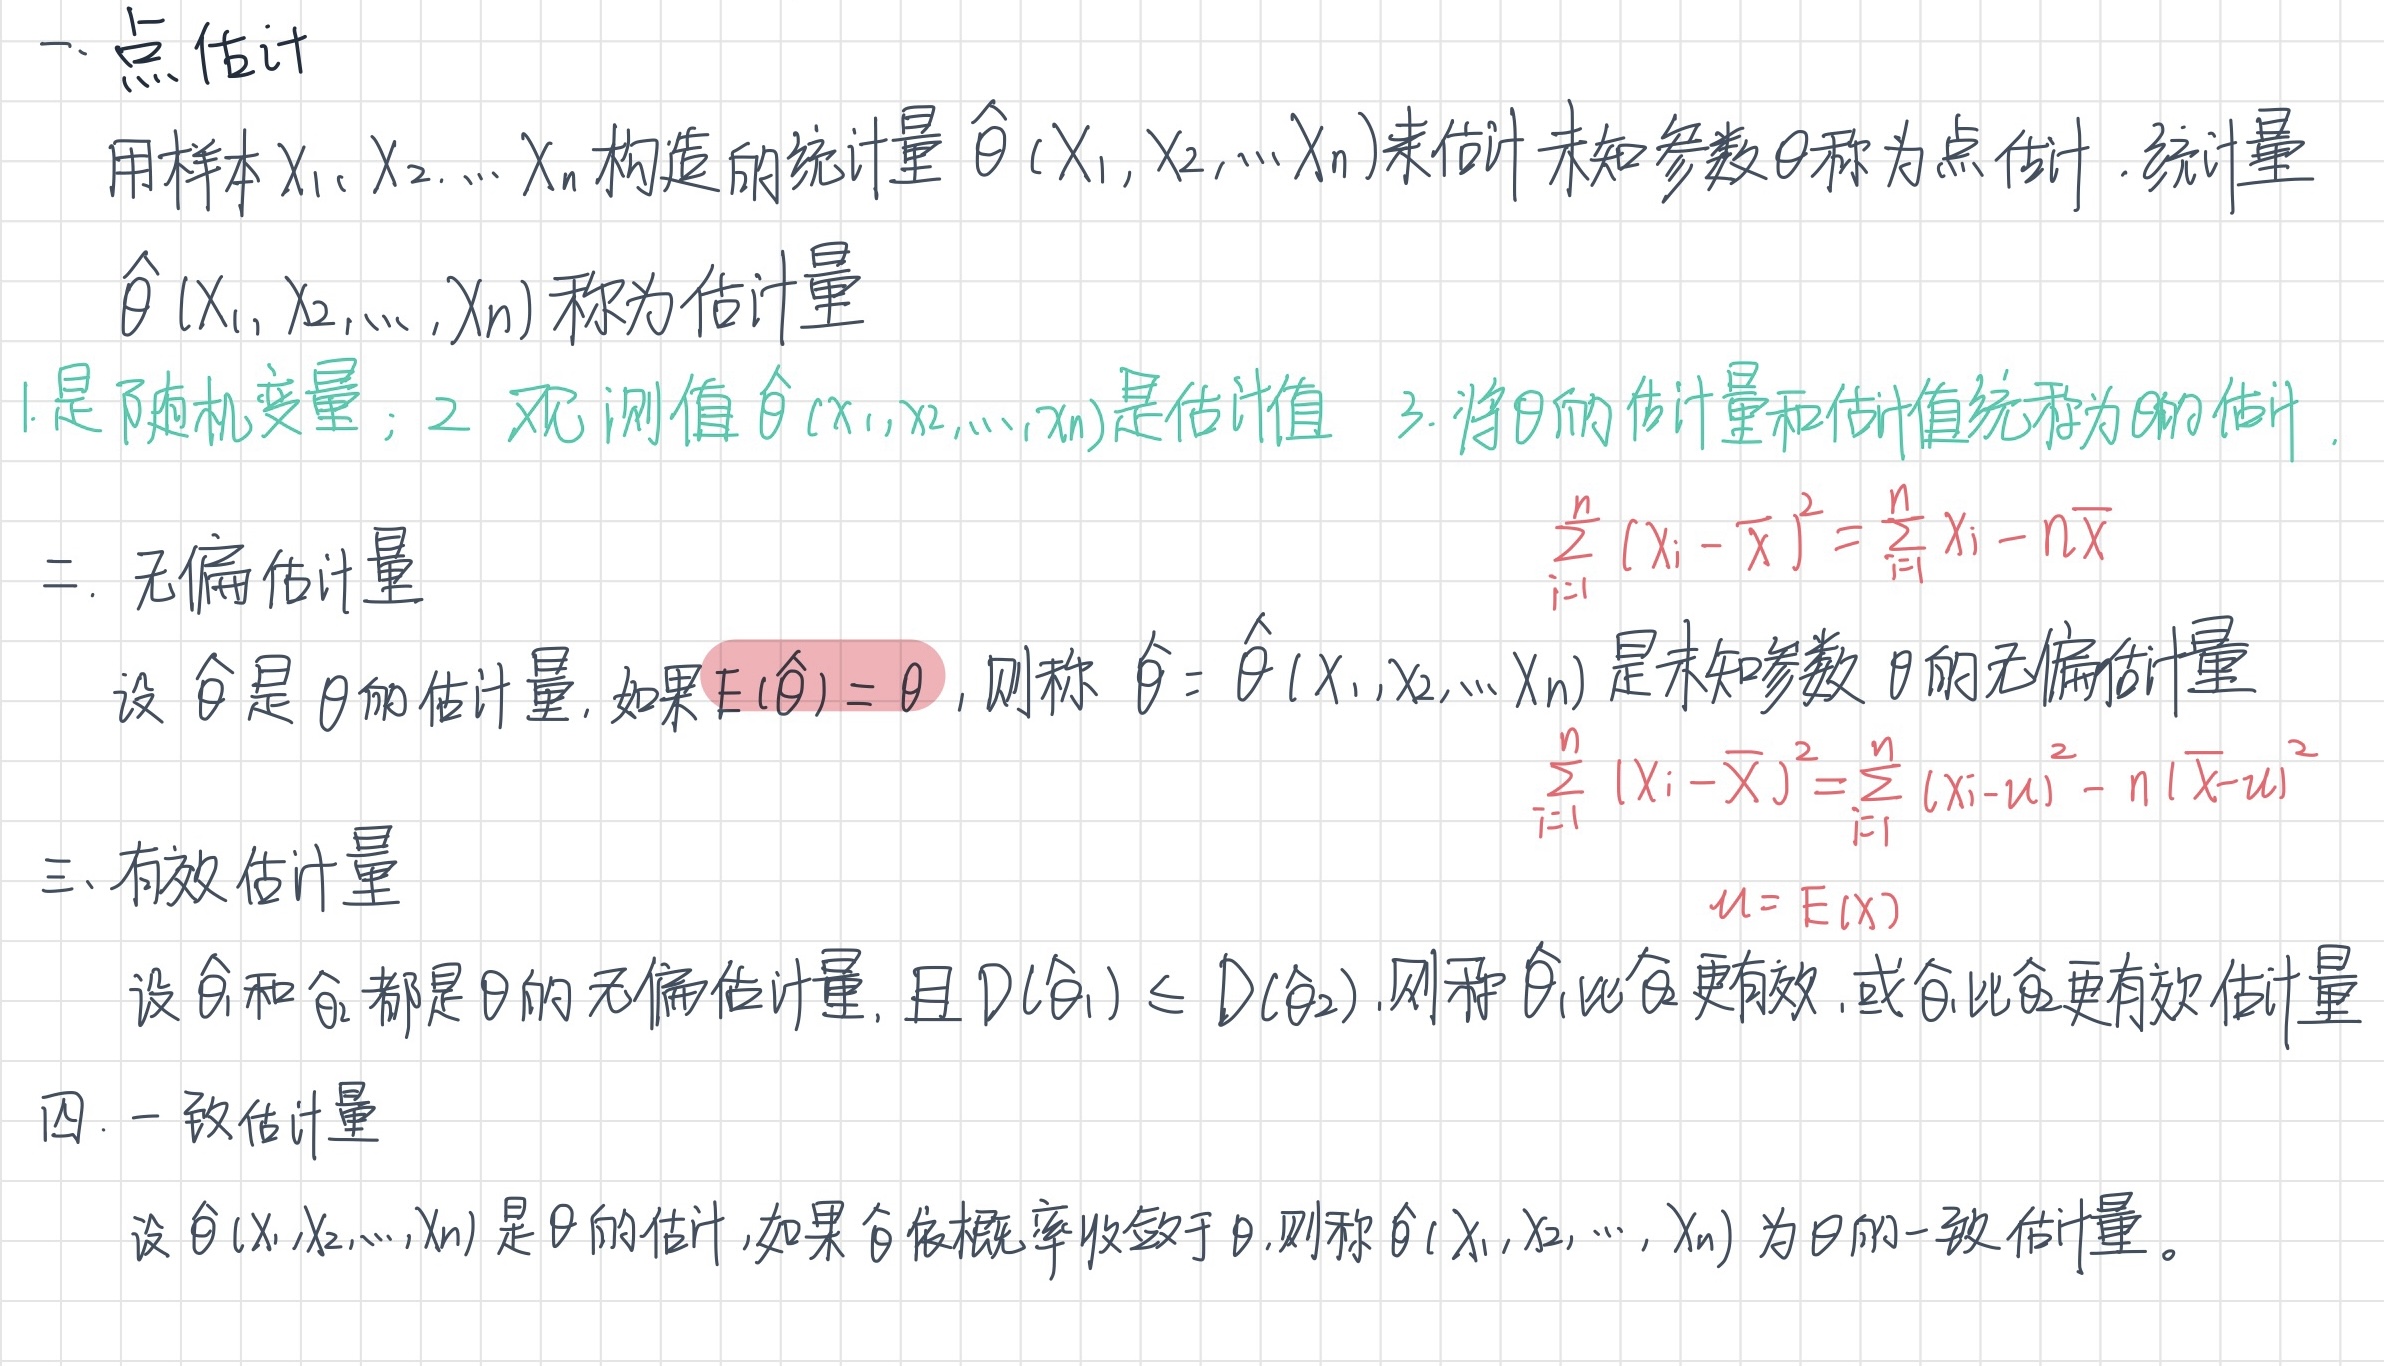 一、点估计
用样本X₁、X₂.…Xₙ构造的统计量 θ̂(X₁, X₂,…Xₙ)来估计未知参数θ称为点估计.统计量
θ̂(X₁, X₂,…,Xₙ)称为估计量
1.是随机变量; 2 观测值θ̂(x₁,x₂,…,xₙ)是估计值 3.将θ的估计量和估计值统称为θ的估计.
∑ⁿᵢ₌₁ (Xᵢ-X̅)² = ∑ⁿᵢ₌₁ Xᵢ - nX̅
二. 无偏估计量
设 θ̂是θ的估计量,如果E(θ̂)=θ,则称 θ̂=θ̂(X₁,X₂,…Xₙ)是未知参数θ的无偏估计量
∑ⁿᵢ₌₁ (Xᵢ-X̅)² = ∑ⁿᵢ₌₁ (Xᵢ-u)² - n(X̅-u)²
三、有效估计量
u=E(X)
设θ̂₁和θ̂₂都是θ的无偏估计量,且D(θ̂₁)≤D(θ̂₂),则称θ̂₁比θ̂₂更有效,或θ̂₁比θ̂₂更有效估计量
四. 一致估计量
设θ̂(X₁,X₂,…,Xₙ)是θ的估计,如果θ̂依概率收敛于θ,则称θ̂(X₁,X₂,…,Xₙ)为θ的一致估计量。